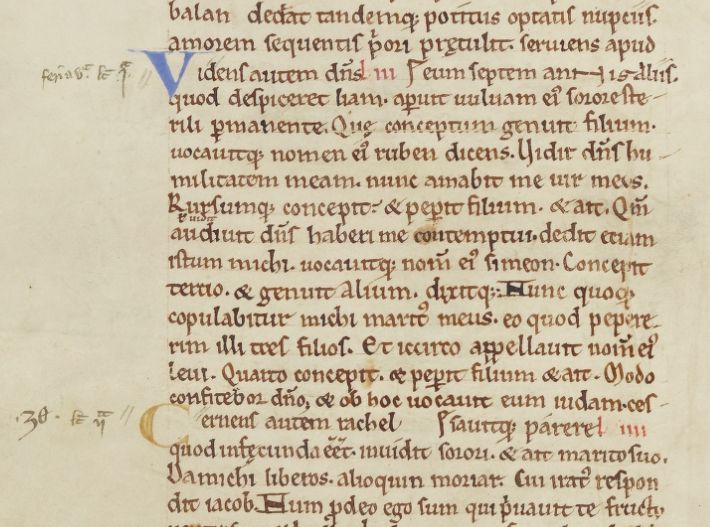 balan dedat tandemq; potitus optatis nupciis.
amorem sequentis p̄ori pretulit. seruiens apud
Videns autem dn̄s l iii eum septem annis aliis.
quod despiceret liam. aperuit uuluam ei᾽ sorore ste-
rili ꝑmanente. Que conceptum genuit filium.
uocauitq; nomen ei᾽ ruben dicens. Uidit dn̄s hu-
militatem meam. nunc amabit me uir meus.
Rursumq; concepit. & peꝑit filium. & ait. Qm̄
audiuit dn̄s haberi me contemptui. dedit etiam
istum michi. uocauitq; nom̄ ei᾽ simeon. Concepit
tercio. & genuit alium. dixitq;. Nunc quoq;
copulabitur michi marit᾽ meus. eo quod pepere-
rim illi tres filios. Et iccirco appellauit nom̄ ei᾽
leui. Quarto concepit. & peꝑit filium & ait. Modo
confitebor dn̄o, & ob hoc uocauit eum iudam. ces-
Cernens autem rachel sauitq; parere l iiii
quod infecunda eēt. inuidit sorori. & ait marito suo.
Da michi liberos. alioquin moriar. Cui irat᾽ respon
dit iacob. Num ꝓ deo ego sum qui p̄uauit te fructu